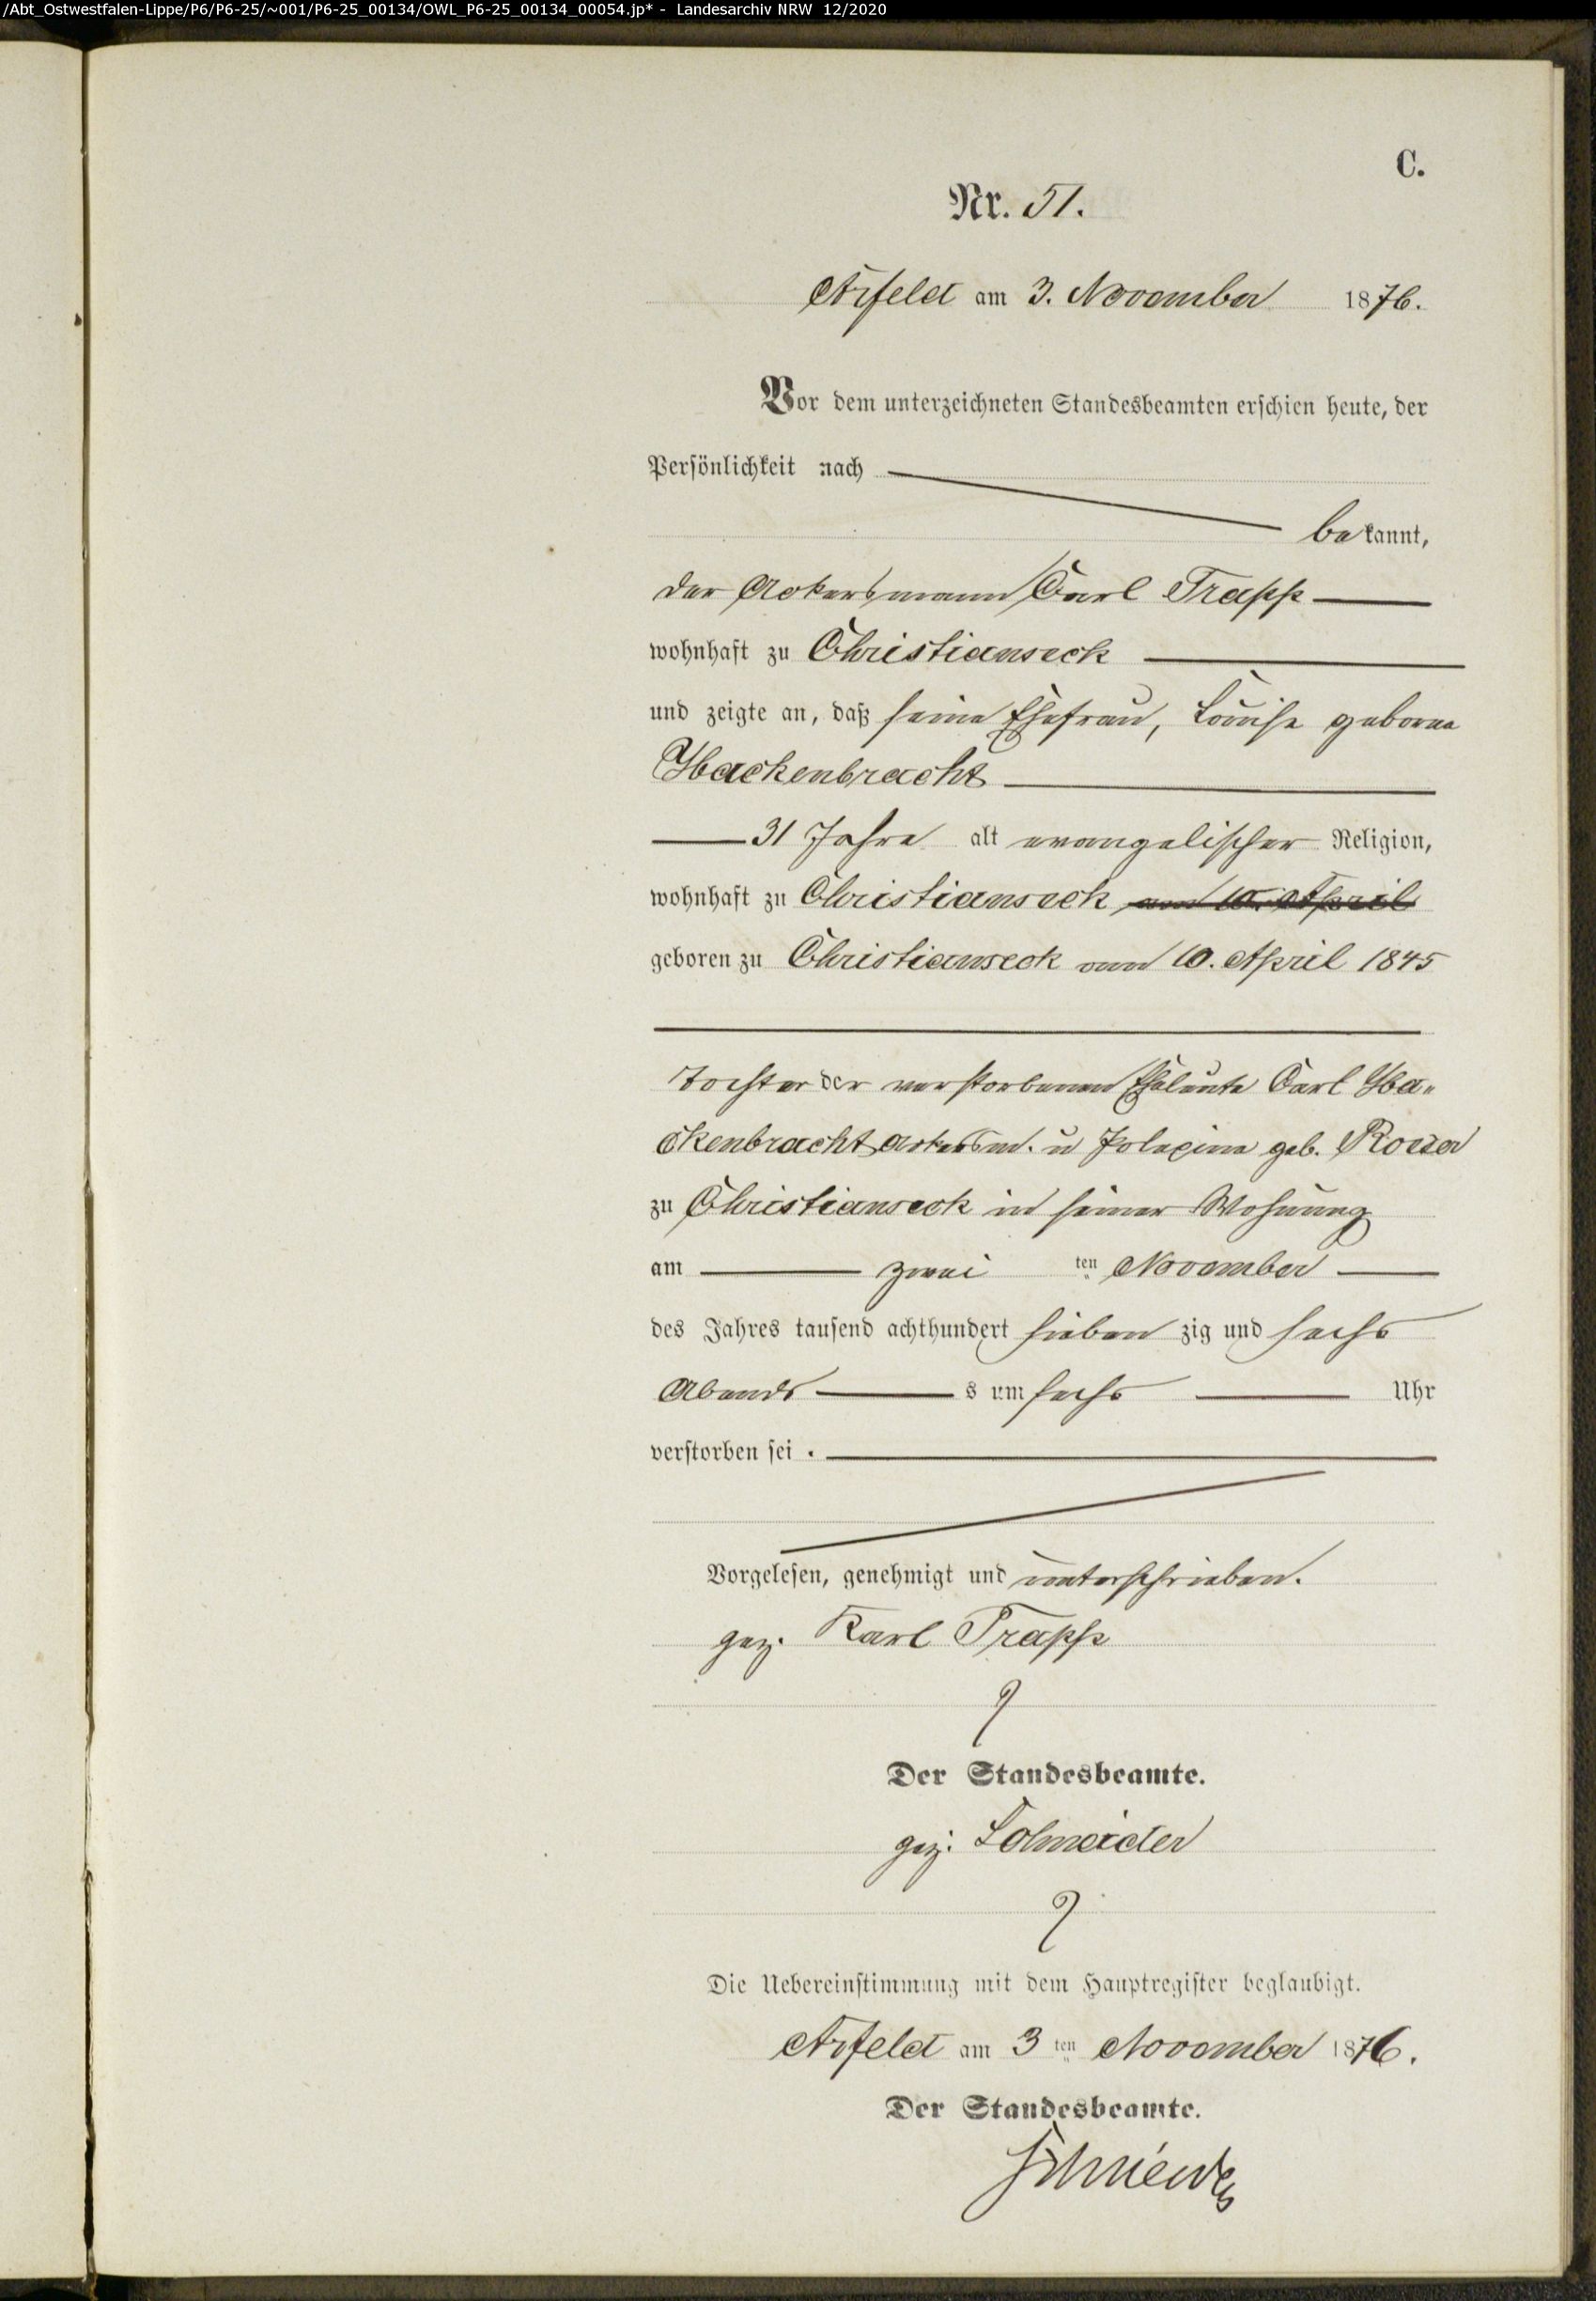 /Abt_Ostwestfalen-Lippe/P6/P6-25/~001/P6-25_00134/OWL_P6-25_00134_00054.jp* - Landesarchiv NRW 12/2020
C.
Nr. 51.
Arfeld am 3. November 1876.
Vor dem unterzeichneten Standesbeamten erschien heute, der
Persönlichkeit nach
bekannt,
der Ackersmann Carl Trapp
wohnhaft zu Christianseck
und zeigte an, daß seine Ehefrau, Louise geborne
Hackenbracht
31 Jahre alt evangelischer Religion,
wohnhaft zu Christianseck am 10. April
geboren zu Christianseck am 10. April 1845
Tochter der verstorbenen Eheleute Carl Ha-
ckenbracht Ackersm. u Polexina geb. Roeser
zu Christianseck in seiner Wohnung
am zwei ten November
des Jahres tausend achthundert sieben zig und sechs
Abends s um sechs Uhr
verstorben sei.
Vorgelesen, genehmigt und unterschrieben.
gez. Karl Trapp
Der Standesbeamte.
gez. Schneider
Die Uebereinstimmung mit dem Hauptregister beglaubigt.
Arfeld am 3 ten November 1876.
Der Standesbeamte.
Schneider